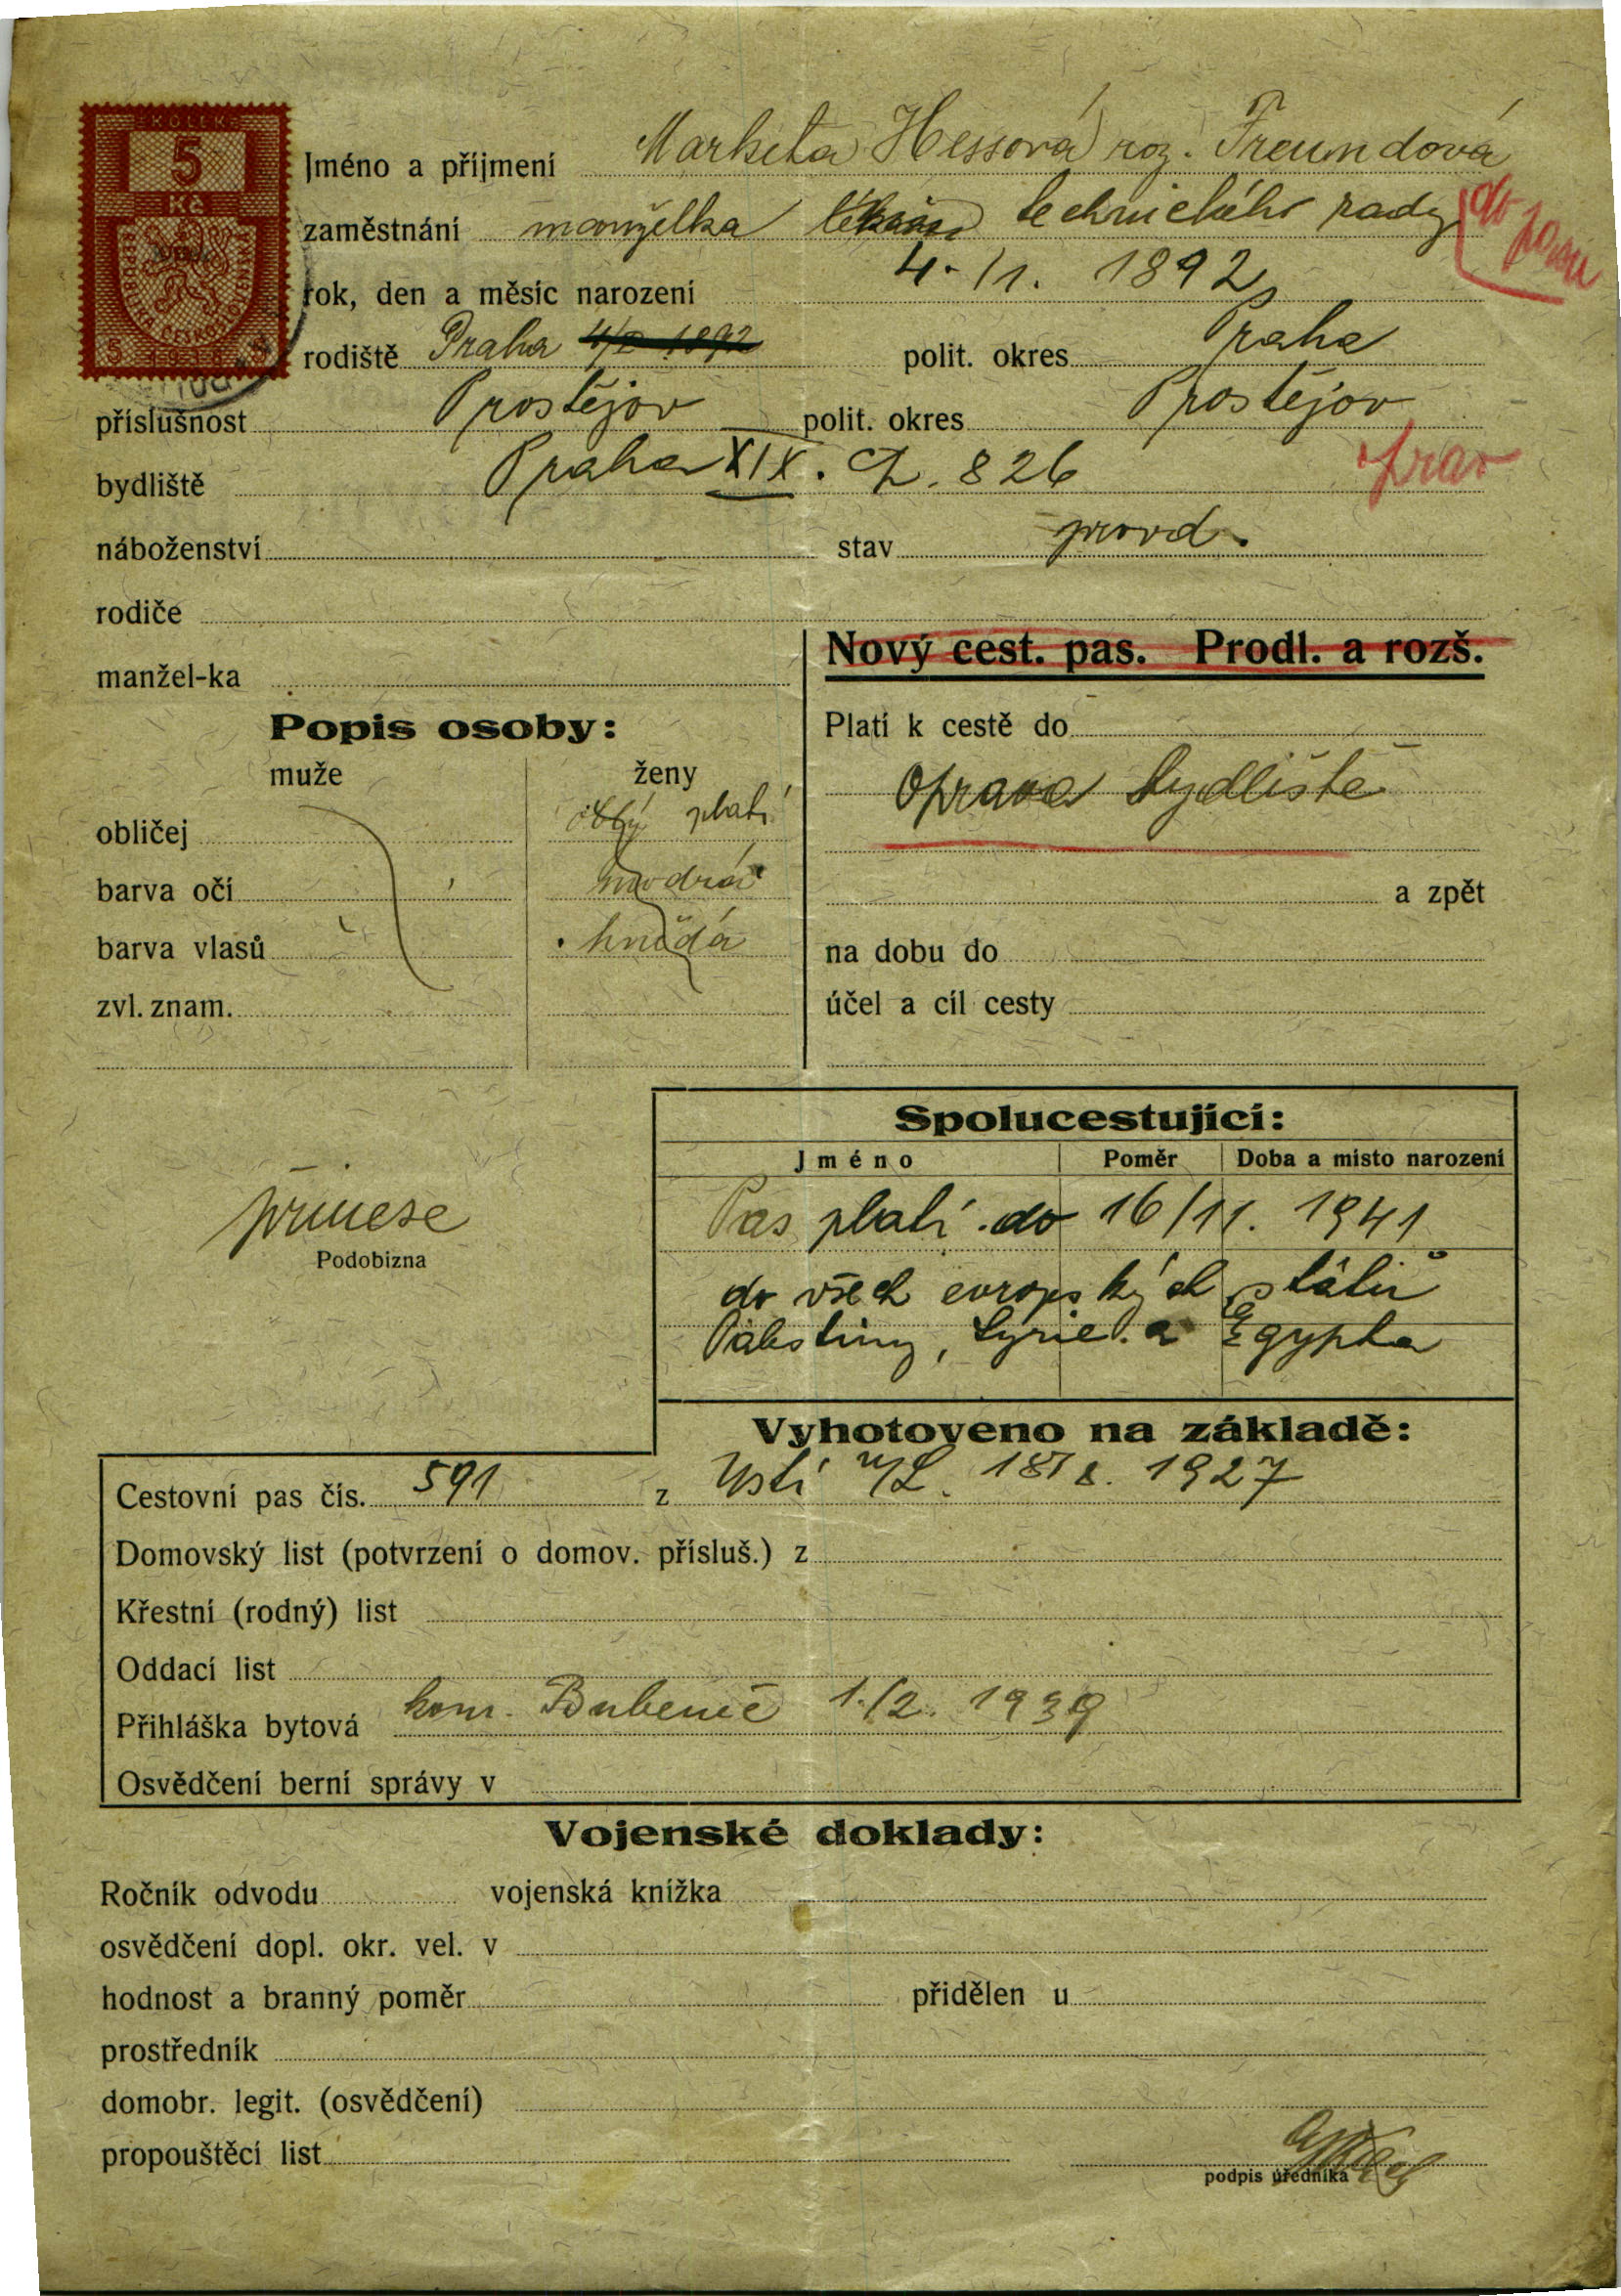 KOLEK
5
Kč
REPUBLIKA ČESKOSLOVENSKÁ
5 1938 5
Jméno a příjmení Marketa Hessová roz. Freundová
zaměstnání manželka technického rady do pasu
rok, den a měsíc narození 4. /1. 1892
rodiště Praha polit. okres Praha
příslušnost Prostějov polit. okres Prostějov
bydliště Praha XIX. čp. 826 oprav
náboženství stav provd.
rodiče
manžel-ka
Nový cest. pas. Prodl. a rozš.
Platí k cestě do
Oprava bydliště
a zpět
na dobu do
účel a cíl cesty
Popis osoby:
muže ženy
obličej oblý platí
barva očí modrá
barva vlasů hnědá
zvl. znam.
přinese
Podobizna
Spolucestující:
Jméno Poměr Doba a místo narození
Pas platí do 16/11. 1941
do všech evropských států
Palestiny, Syrie a Egypta
Vyhotoveno na základě:
Cestovní pas čís. 591 z Ústí n/L. 18/8. 1927
Domovský list (potvrzení o domov. přísluš.) z
Křestní (rodný) list
Oddací list
Přihláška bytová kom. Bubeneč 1./2. 1939
Osvědčení berní správy v
Vojenské doklady:
Ročník odvodu vojenská knížka
osvědčení dopl. okr. vel. v
hodnost a branný poměr přidělen u
prostředník
domobr. legit. (osvědčení)
propouštěcí list
podpis úředníka